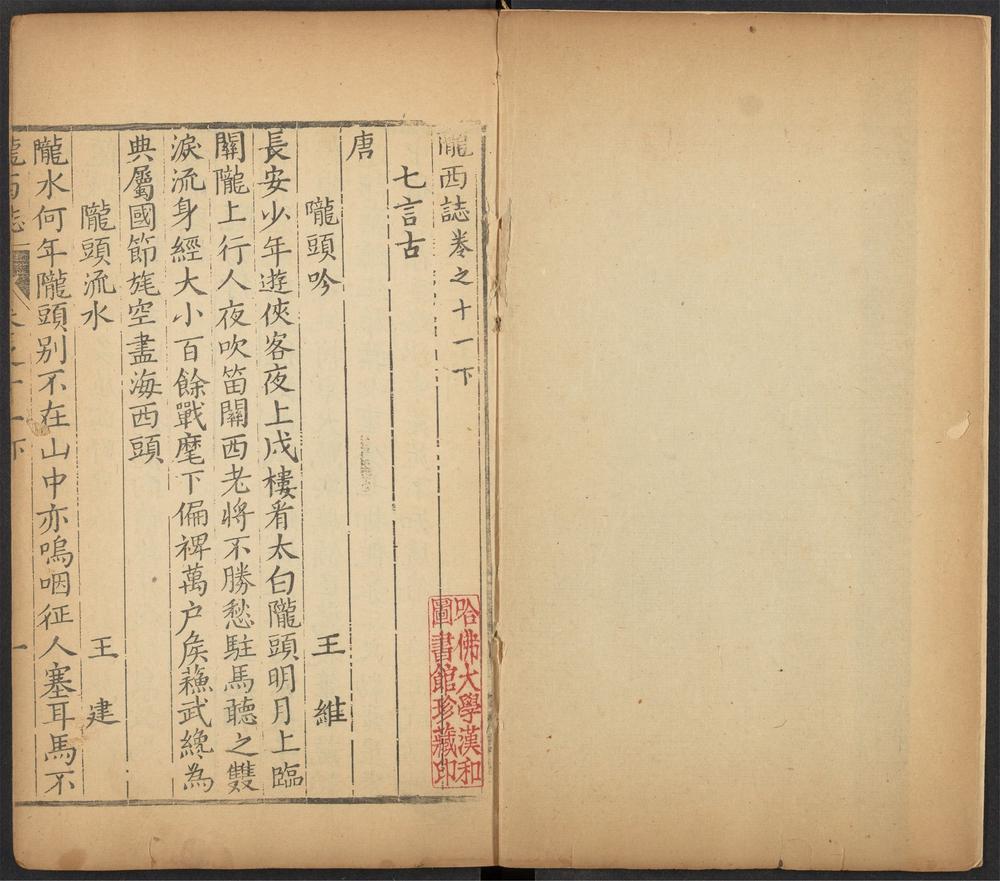 隴西誌卷之十一下
七言古
唐
隴頭吟 王維
長安少年遊俠客夜上戍樓看太白隴頭明月上臨
關隴上行人夜吹笛關西老將不勝愁駐馬聽之雙
淚流身經大小百餘戰麾下偏裨萬户矦蘓武纔為
典屬國節旄空盡海西頭
隴頭流水 王建
隴水何年隴頭别不在山中亦嗚咽征人塞耳馬不
隴西誌 卷之十一下 一
哈佛大學漢和
圖書館珍藏印